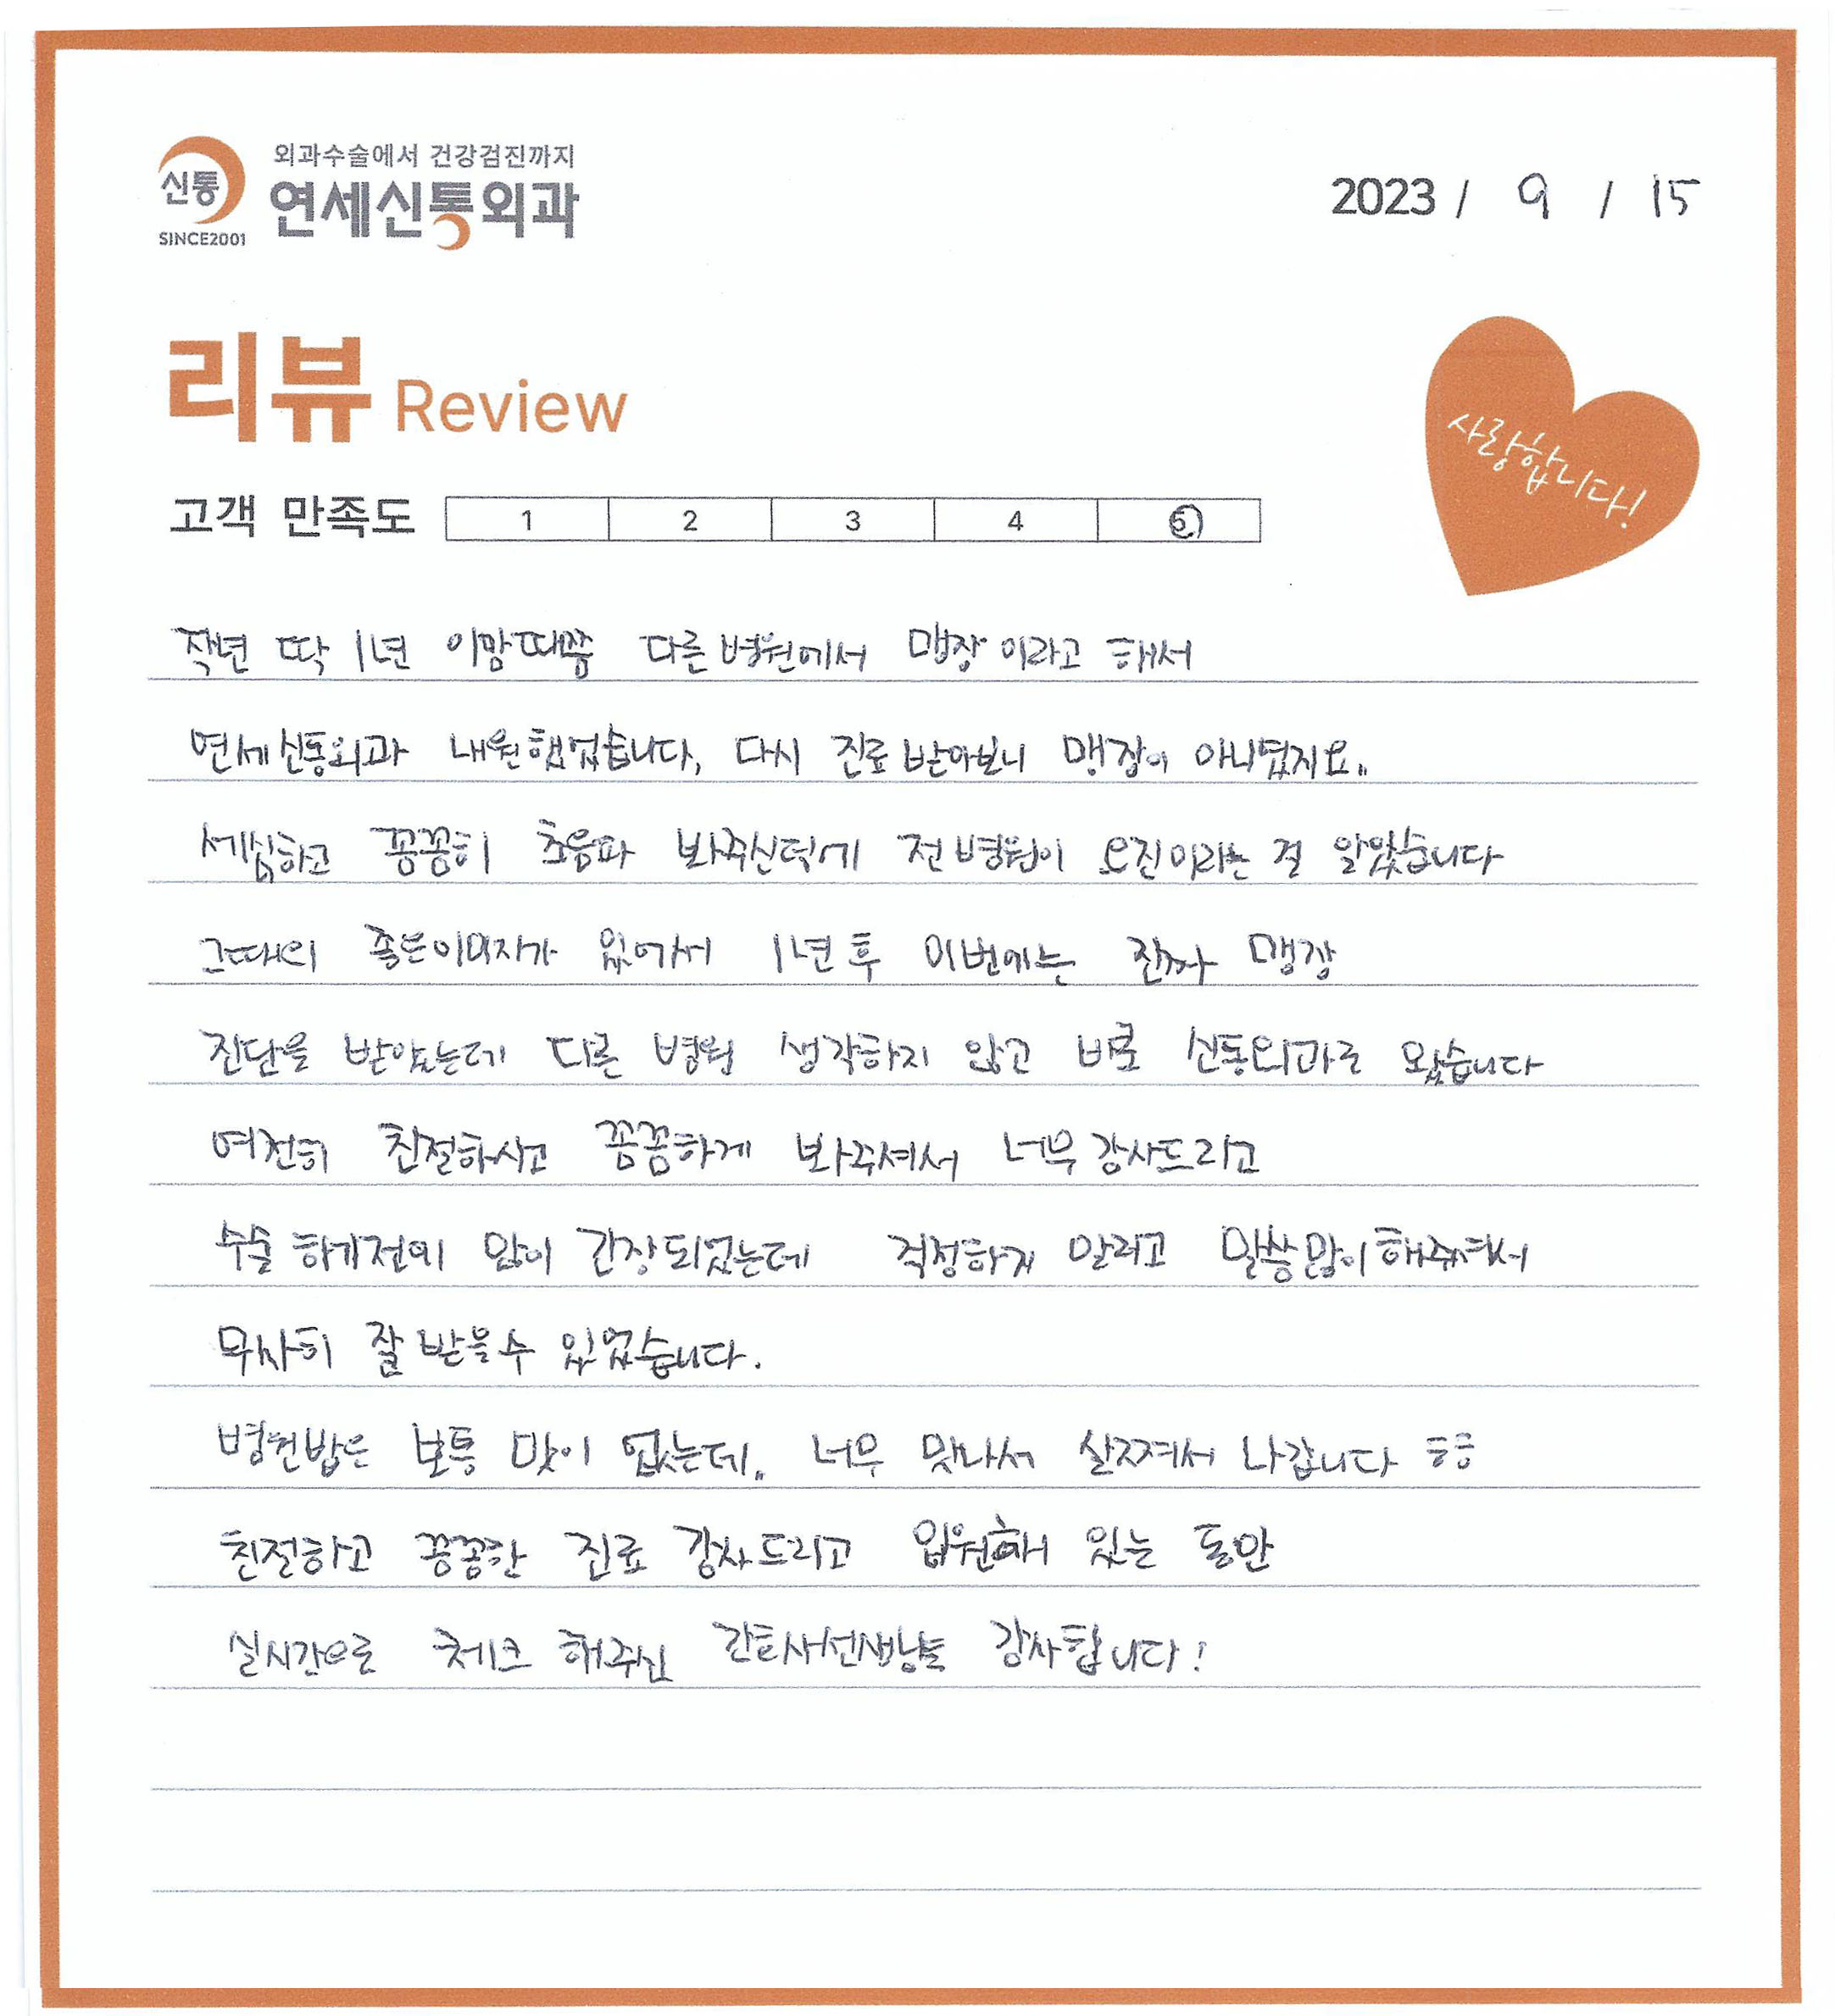 외과수술에서 건강검진까지
신통 연세신통외과
SINCE2001
2023 / 9 / 15
리뷰 Review
사랑합니다!
고객 만족도 1 2 3 4 5
작년 딱 1년 이맘때쯤 다른 병원에서 맹장이라고 해서
연세신통외과 내원했었습니다, 다시 진료 받아보니 맹장이 아니였지요..
세심하고 꼼꼼히 초음파 봐주신덕에 전 병원이 오진이라는 걸 알았습니다
그때의 좋은이미지가 있어서 1년 후 이번에는 진짜 맹장
진단을 받았는데 다른 병원 생각하지 않고 바로 신통외과로 왔습니다
여전히 친절하시고 꼼꼼하게 봐주셔서 너무 감사드리고
수술 하기전에 많이 긴장되었는데 걱정하지 말라고 말씀많이해주셔서
무사히 잘 받을수 있었습니다.
병원밥은 보통 맛이 없는데.. 너무 맛나서 살쪄서 나갑니다 ㅎㅎ
친절하고 꼼꼼한 진료 감사드리고 입원해 있는 동안
실시간으로 체크 해주신 간호사선생님들 감사합니다!